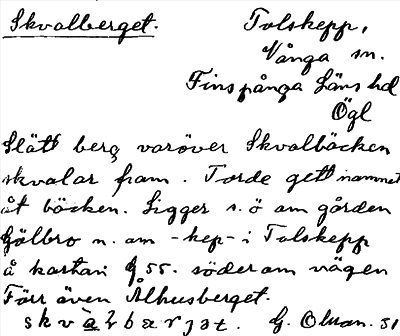 Skvalberget.
Tolskepp,
Vånga sn.
Finspånga Läns hd
Ögl
Slätt berg varöver Skvalbäcken
skvalar fram. Torde gett namnet
åt bäcken. Ligger s. ö om gården
Gölbro n. om -kep- i Tolskepp
å kartan G 55. söder om vägen
Förr även Ålhusberget.
G. Olman. 51